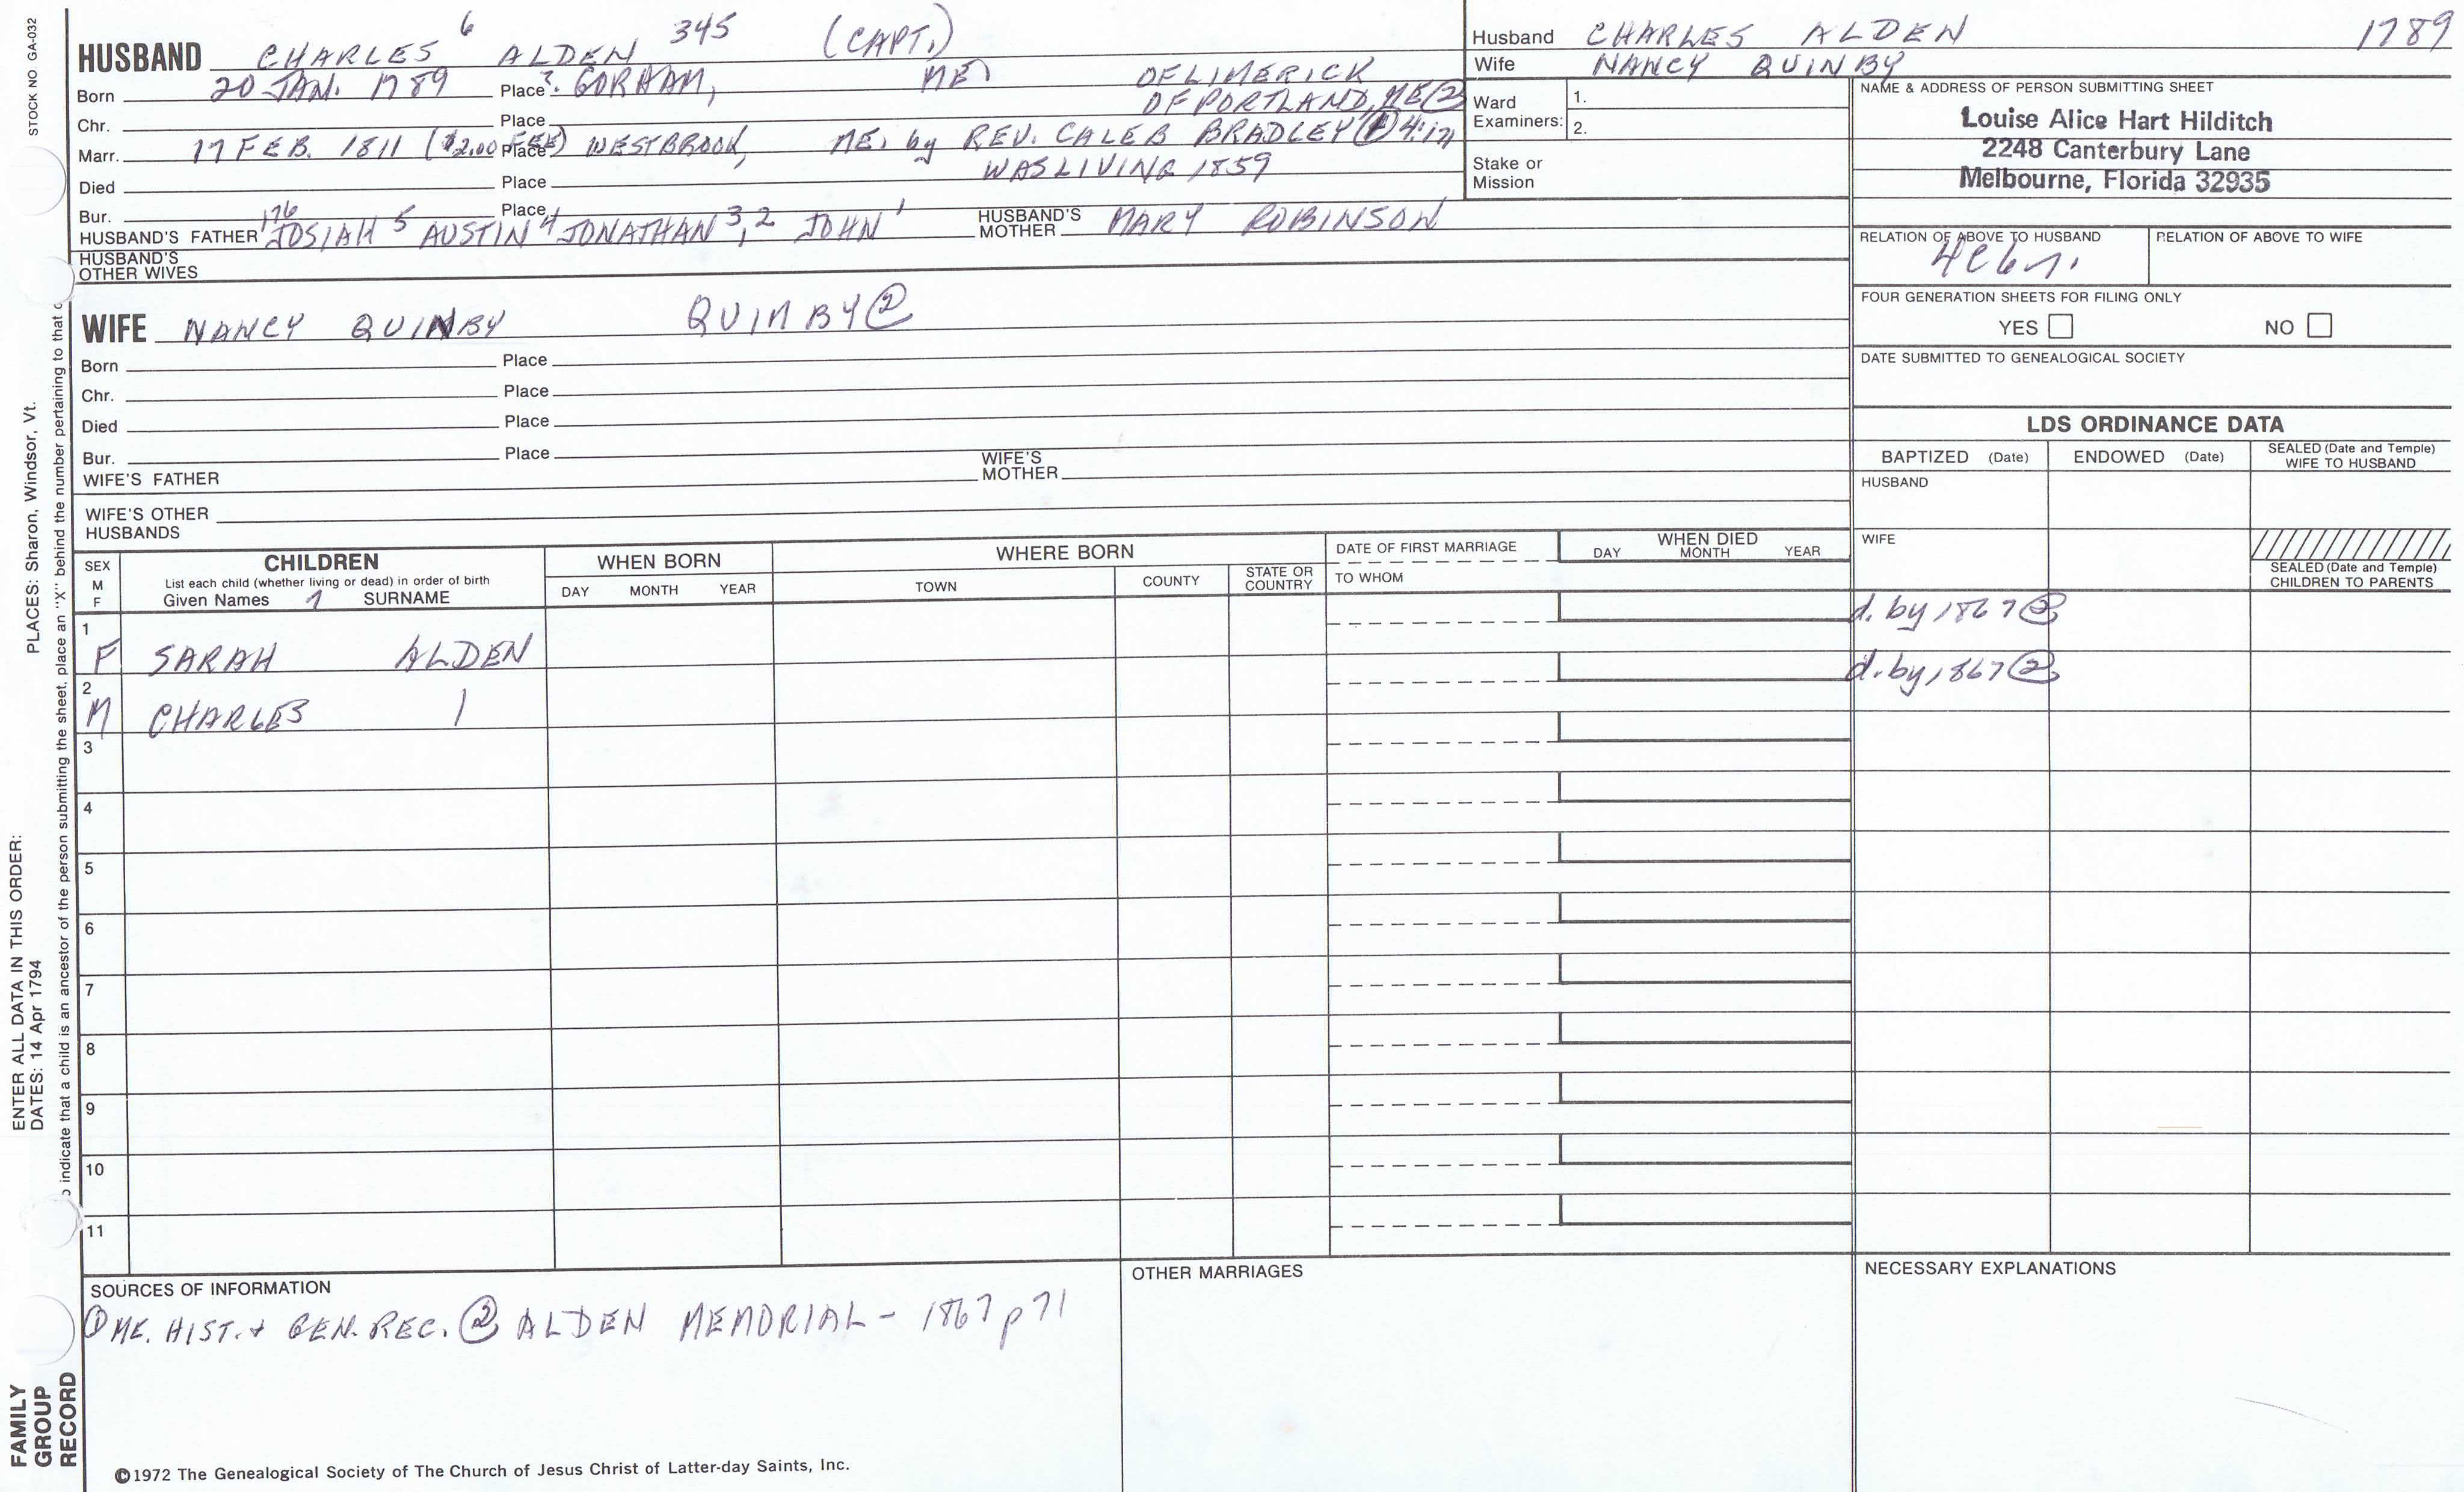 STOCK NO GA-032
PLACES: Sharon, Windsor, Vt.
ENTER ALL DATA IN THIS ORDER:
DATES: 14 Apr 1794
indicate that a child is an ancestor of the person submitting the sheet, place an "X" behind the number pertaining to that
FAMILY
GROUP
RECORD
HUSBAND CHARLES 6 ALDEN 345 (CAPT.)
Born 20 JAN. 1789 Place ? GORHAM, ME. OF LIMERICK
Chr. Place OF PORTLAND, ME ②
Marr. 17 FEB. 1811 ($2.00 FEE) Place WESTBROOK, ME. by REV. CALEB BRADLEY ① 4:17
Died Place WAS LIVING 1859
Bur. Place
HUSBAND'S FATHER 176 JOSIAH 5 AUSTIN 4 JONATHAN 3,2 JOHN 1 HUSBAND'S MOTHER MARY ROBINSON
HUSBAND'S
OTHER WIVES
WIFE NANCY QUINBY QUIMBY ②
Born Place
Chr. Place
Died Place
Bur. Place
WIFE'S FATHER WIFE'S MOTHER
WIFE'S OTHER
HUSBANDS
Husband CHARLES ALDEN 1789
Wife NANCY QUINBY
Ward
Examiners: 1.
2.
Stake or
Mission
NAME & ADDRESS OF PERSON SUBMITTING SHEET
Louise Alice Hart Hilditch
2248 Canterbury Lane
Melbourne, Florida 32935
RELATION OF ABOVE TO HUSBAND RELATION OF ABOVE TO WIFE
FOUR GENERATION SHEETS FOR FILING ONLY
YES NO
DATE SUBMITTED TO GENEALOGICAL SOCIETY
LDS ORDINANCE DATA
BAPTIZED (Date) ENDOWED (Date) SEALED (Date and Temple)
WIFE TO HUSBAND
HUSBAND
WIFE
SEALED (Date and Temple)
CHILDREN TO PARENTS
SEX
M
F
CHILDREN
List each child (whether living or dead) in order of birth
Given Names 7 SURNAME
WHEN BORN
DAY MONTH YEAR
WHERE BORN
TOWN COUNTY STATE OR COUNTRY
DATE OF FIRST MARRIAGE
TO WHOM
WHEN DIED
DAY MONTH YEAR
1
F SARAH ALDEN d. by 1867 ②
2
M CHARLES d. by 1867 ②
3
4
5
6
7
8
9
10
11
SOURCES OF INFORMATION
① ME. HIST. + GEN. REC. ② ALDEN MEMORIAL - 1867 p 71
OTHER MARRIAGES
NECESSARY EXPLANATIONS
©1972 The Genealogical Society of The Church of Jesus Christ of Latter-day Saints, Inc.